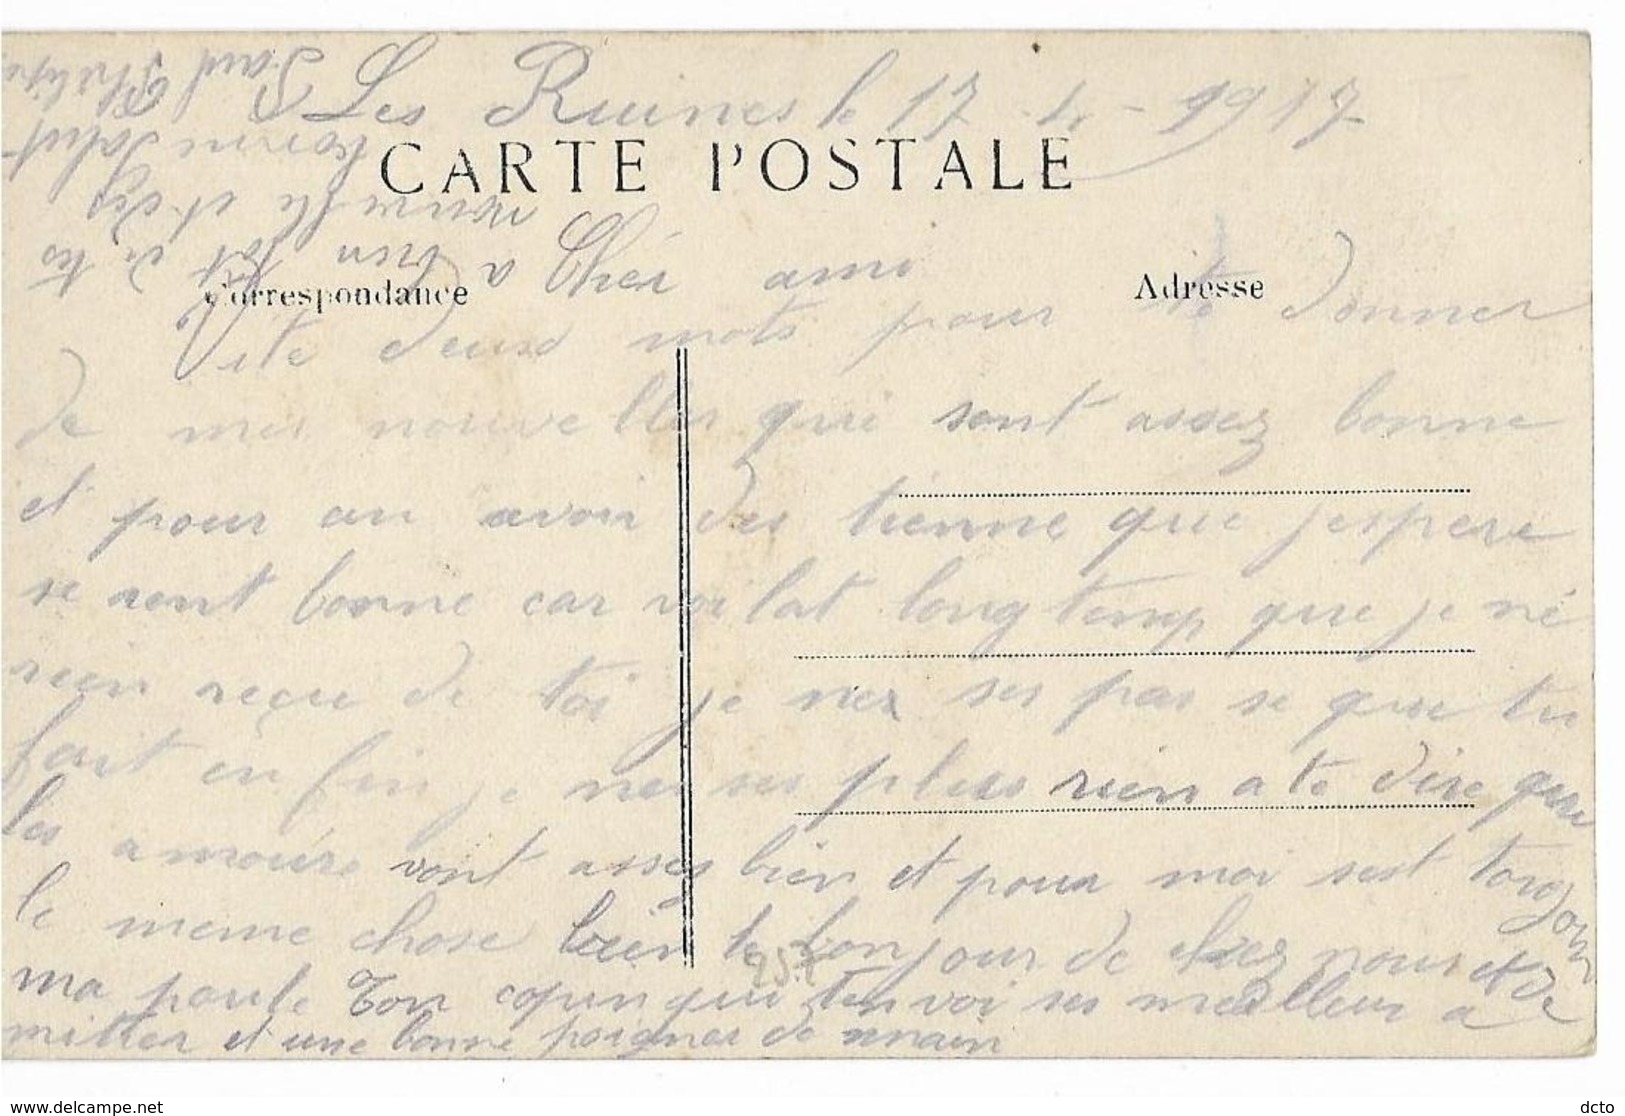 Les Ruines le 17-4-1917
CARTE POSTALE
Cher ami
Correspondance
Adresse
Vite deux mots pour te donner
de mes nouvelles qui sont assez bonne
et pour an avoir des tienne que jespere
se ront bonne car voi lat long temp que je né
rien reçu de toi je nex ses pas se que tu
fait en fin je nes ses plus rien a te dire que
les amoure vont asses bien et pour moi sest toujour
le meme chose bien le bonjour de chez nous et de
ma poule Ton copin qui ten voi ses meilleur a
mitier et une bonne poigner de main
a bien tot de tes
nouvelle et
salut
Paul
95x
delcampe.net
dcto